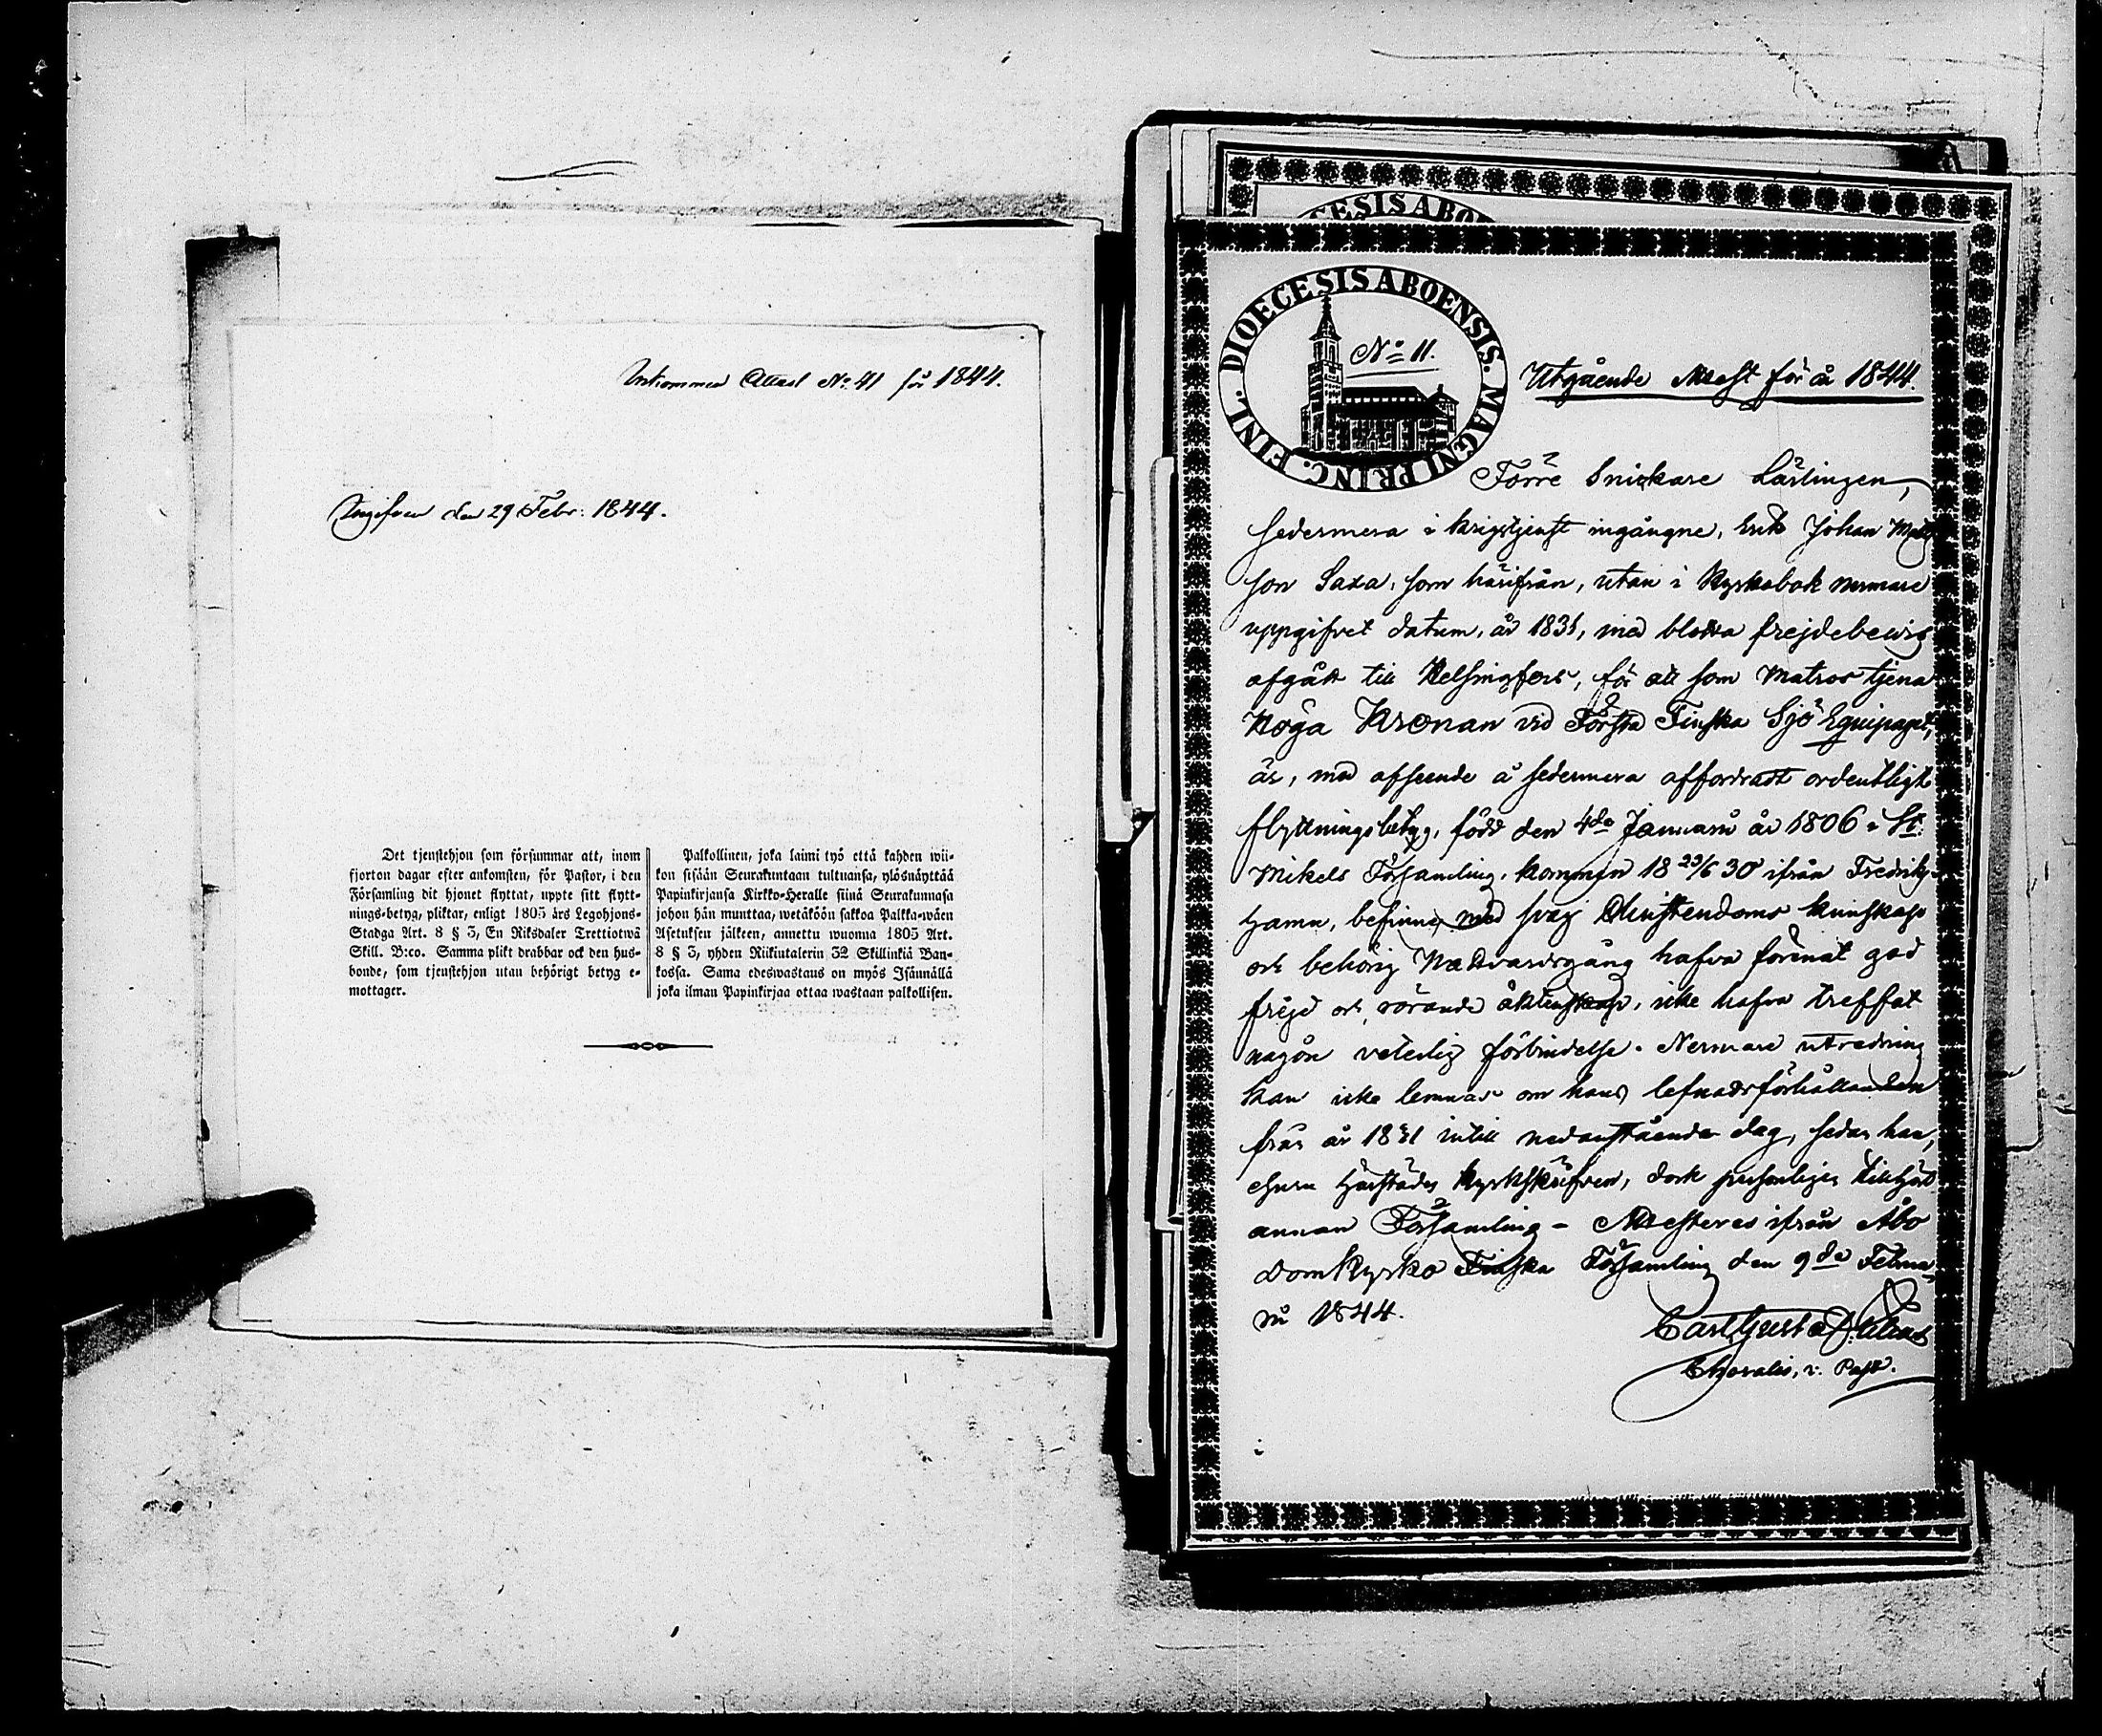 Inkommen Attest No. 41 för 1844.
Ingifven den 29 Febr: 1844.
Det tjenstehjon som försummar att, inom
fjorton dagar efter ankomsten, för Pastor, i den
Församling dit hjonet flyttat, uppte sitt flytt-
nings-betyg, pliktar, enligt 1805 års Legohjons-
Stadga Art. 8 § 3, En Riksdaler Trettiotwå
Skill. B:co. Samma plikt drabbar ock den hus-
bonde, som tjenstehjon utan behörigt betyg e-
mottager.
Palkollinen, joka laimi työ että kahden wii-
kon sisään Seurakuntaan tultuansa, ylösnäyttää
Papinkirjansa Kirkko-Heralle siinä Seurakunnasa
johon hän munttaa, wetäköön sakkoa Palkka-wäen
Asetuksen jälkeen, annettu wuonna 1805 Art.
8 § 3, yhden Riikintalerin 32 Skillinkiä Ban-
kossa. Sama edeswastaus on myös Isännällä
joka ilman Papinkirjaa ottaa wastaan palkollisen.
ESIS ABO
DIOECESIS ABOENSIS. MAGNI PRINC. FINL.
No 11.
Utgående Attest för år 1844.
Förre Snickare Lärlingen,
sedermera i krigstjenst ingångne, Erik Johan Mats
son Saxa, som härifrån, utan i Kyrkobok nermare
uppgifvet datum, år 1831, med blotta frejdebevis
afgått till Helsingfors, för att som Matros tjena
Höga Kronan vid Första Finska Sjö Equipaget,
är, med afseende å sedermera affordradt ordentligt
flyttningsbetyg, född den 4de Januarii år 1806 i St.
Mikels Församling, kommen 18 23/6 30 ifrån Fredriks-
hamn, befinnes med svag Christendoms kunskap
och behörig Nattvardsgång hafva förenat god
frejd och, rörande äktenskap, icke hafva treffat
någon veterlig förbindelse. Nermare utredning
kan icke lemnas om hans lefnadsförhållanden
från år 1831 intill nedanstående dag, sedan han,
ehuru härstädes kyrkskrifven, dock personligen tillhört
annan Församling - Attesteres ifrån Åbo
Domkyrko Finska Församling den 9de Februa-
rii 1844.
Carl Gustaf
v. Past.